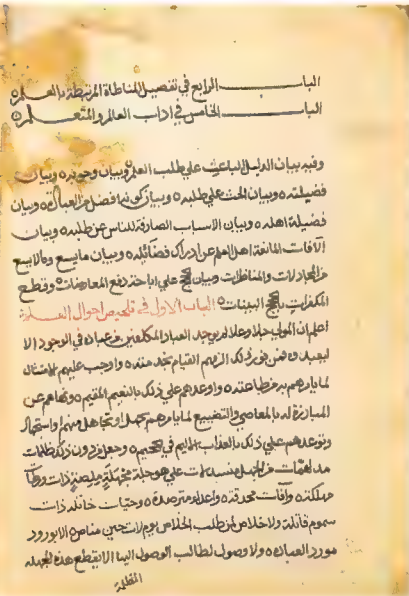 الباب الرابع في تفصيل المناطاة المرتبطة بالعلم
الباب الخامس في اداب العالم والمتعلم
وفيه بيان الدليل الباعث علي طلب العلم وبيان وجوبه وبيان
فضيلته وبيان الحث علي طلبه وبيان كونه افضل من العبادة وبيان
فضيلة اهله وبيان الاسباب الصارفة للناس عن طلبه وبيان
الآفات المانعة اهل العلم عن ادراك فضائله وبيان ما يسع وما لا يسع
من المجادلات والمناظرات وبيان علي اباحة دفع المعارضات وقطع
المكفرات البينات الباب الاول في تلخيص احوال العلم
اعلم ان المولي جل وعلا لم يوجد العباد المكلفين من عباده في الوجود الا
ليعبدوه فمن فور ذلك الزمهم القيام بخدمته واوجب عليهم الامتثال
لما يامرهم به من طاعته واوعدهم علي ذلك بالنعيم المقيم ونهاهم عن
المبارزة له بالمعاصي والتضييع لما يامرهم بجهل او تجاهل
وتوعدهم علي ذلك بالعذاب الاليم في الجحيم وجعل من دون ذلك ظلمات
مدلهمات من الجهل علي هوجلة ذات
مهلكة وآفات محدقة واعداء مترصدة وحيات خاتلة ذات
سموم قاتلة ولا خلاص لمن طلب الخلاص يوم لات حين مناص الا بورود
مورد العبادة ولا وصول لطالب الوصول اليها الا بقطع هذه
المظلمة